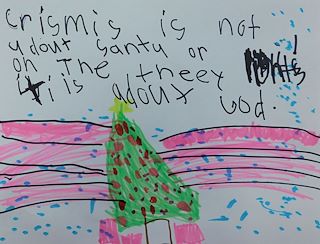 Crismis is not
ydout santy or
on The theey lights!
iti is ddout God.